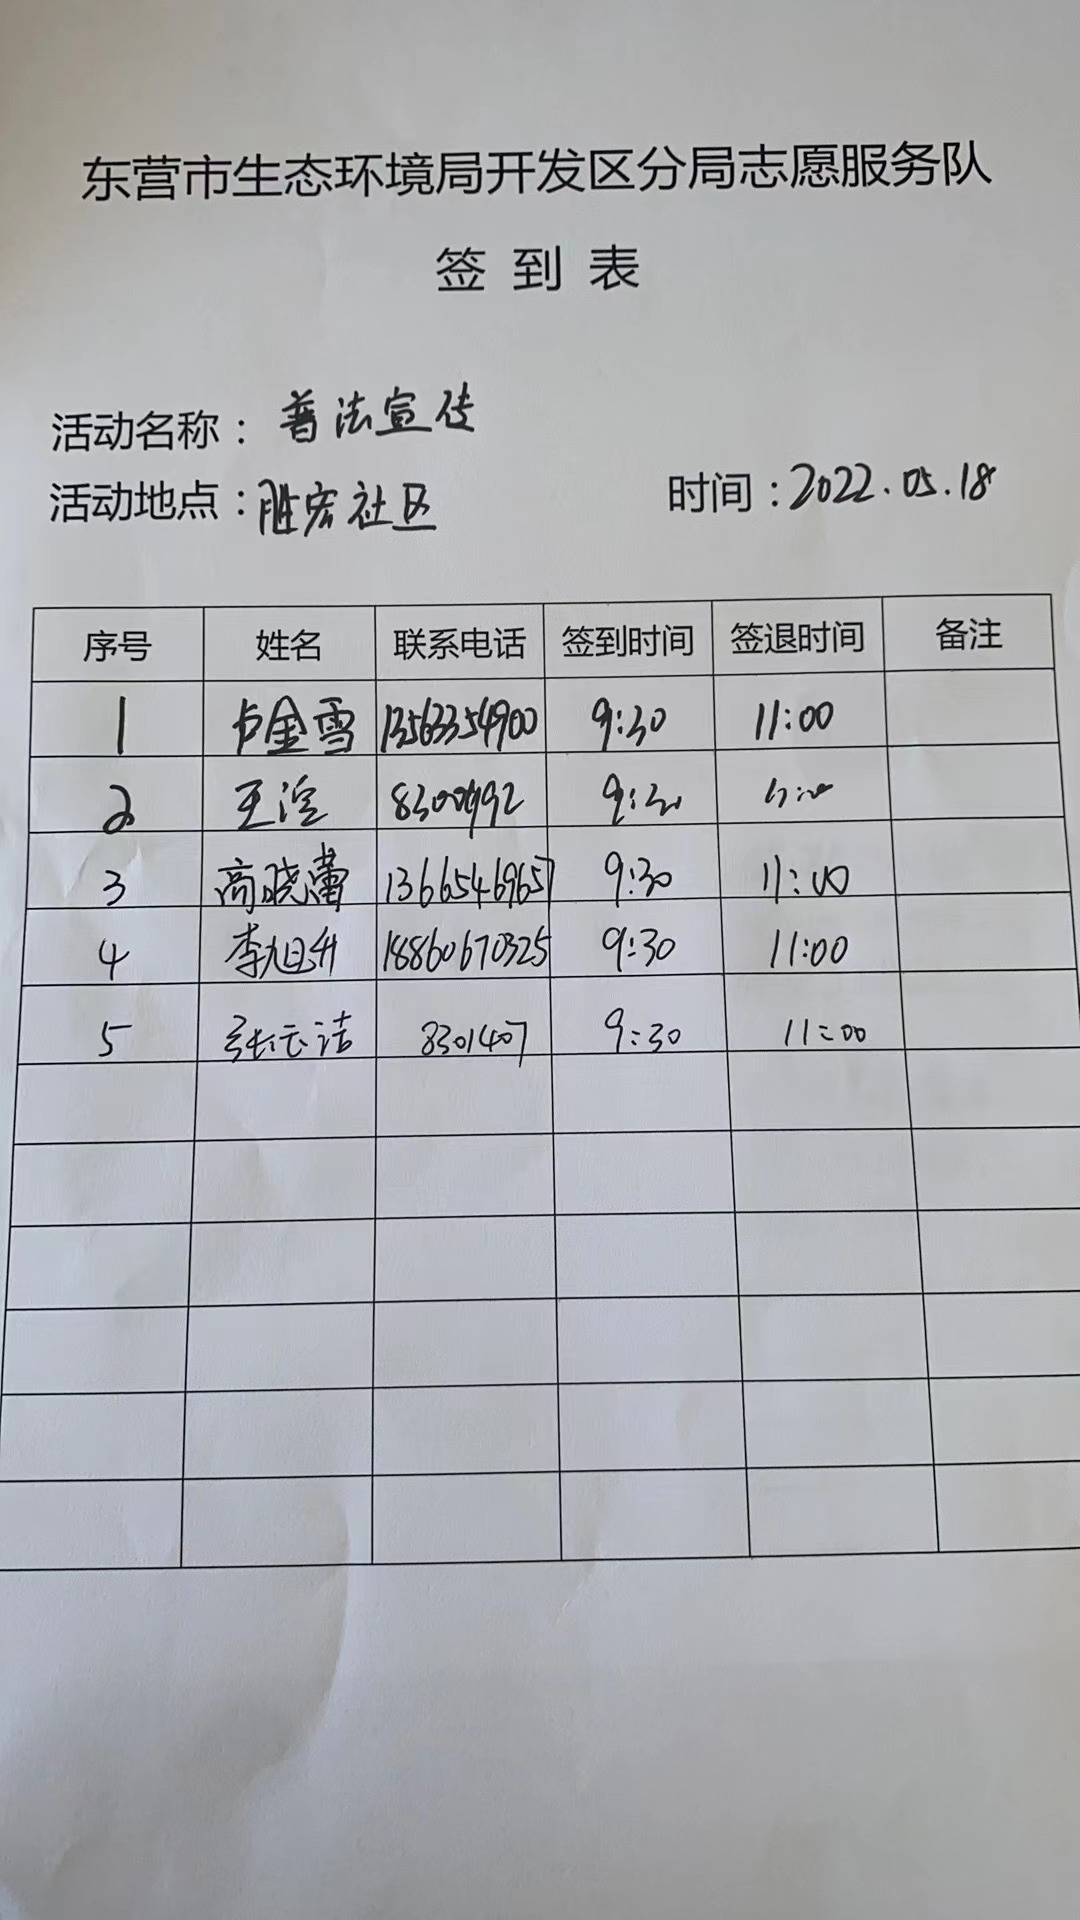 东营市生态环境局开发区分局志愿服务队
签到表
活动名称：普法宣传
活动地点：胜宏社区 时间：2022.05.18
序号 姓名 联系电话 签到时间 签退时间 备注
1 卢金雪 13563354900 9:30 11:00
2 王滢 9:30
3 高晓蕾 13665469657 9:30 11:00
4 李旭升 18860670325 9:30 11:00
5 张云洁 8301407 9:30 11:00